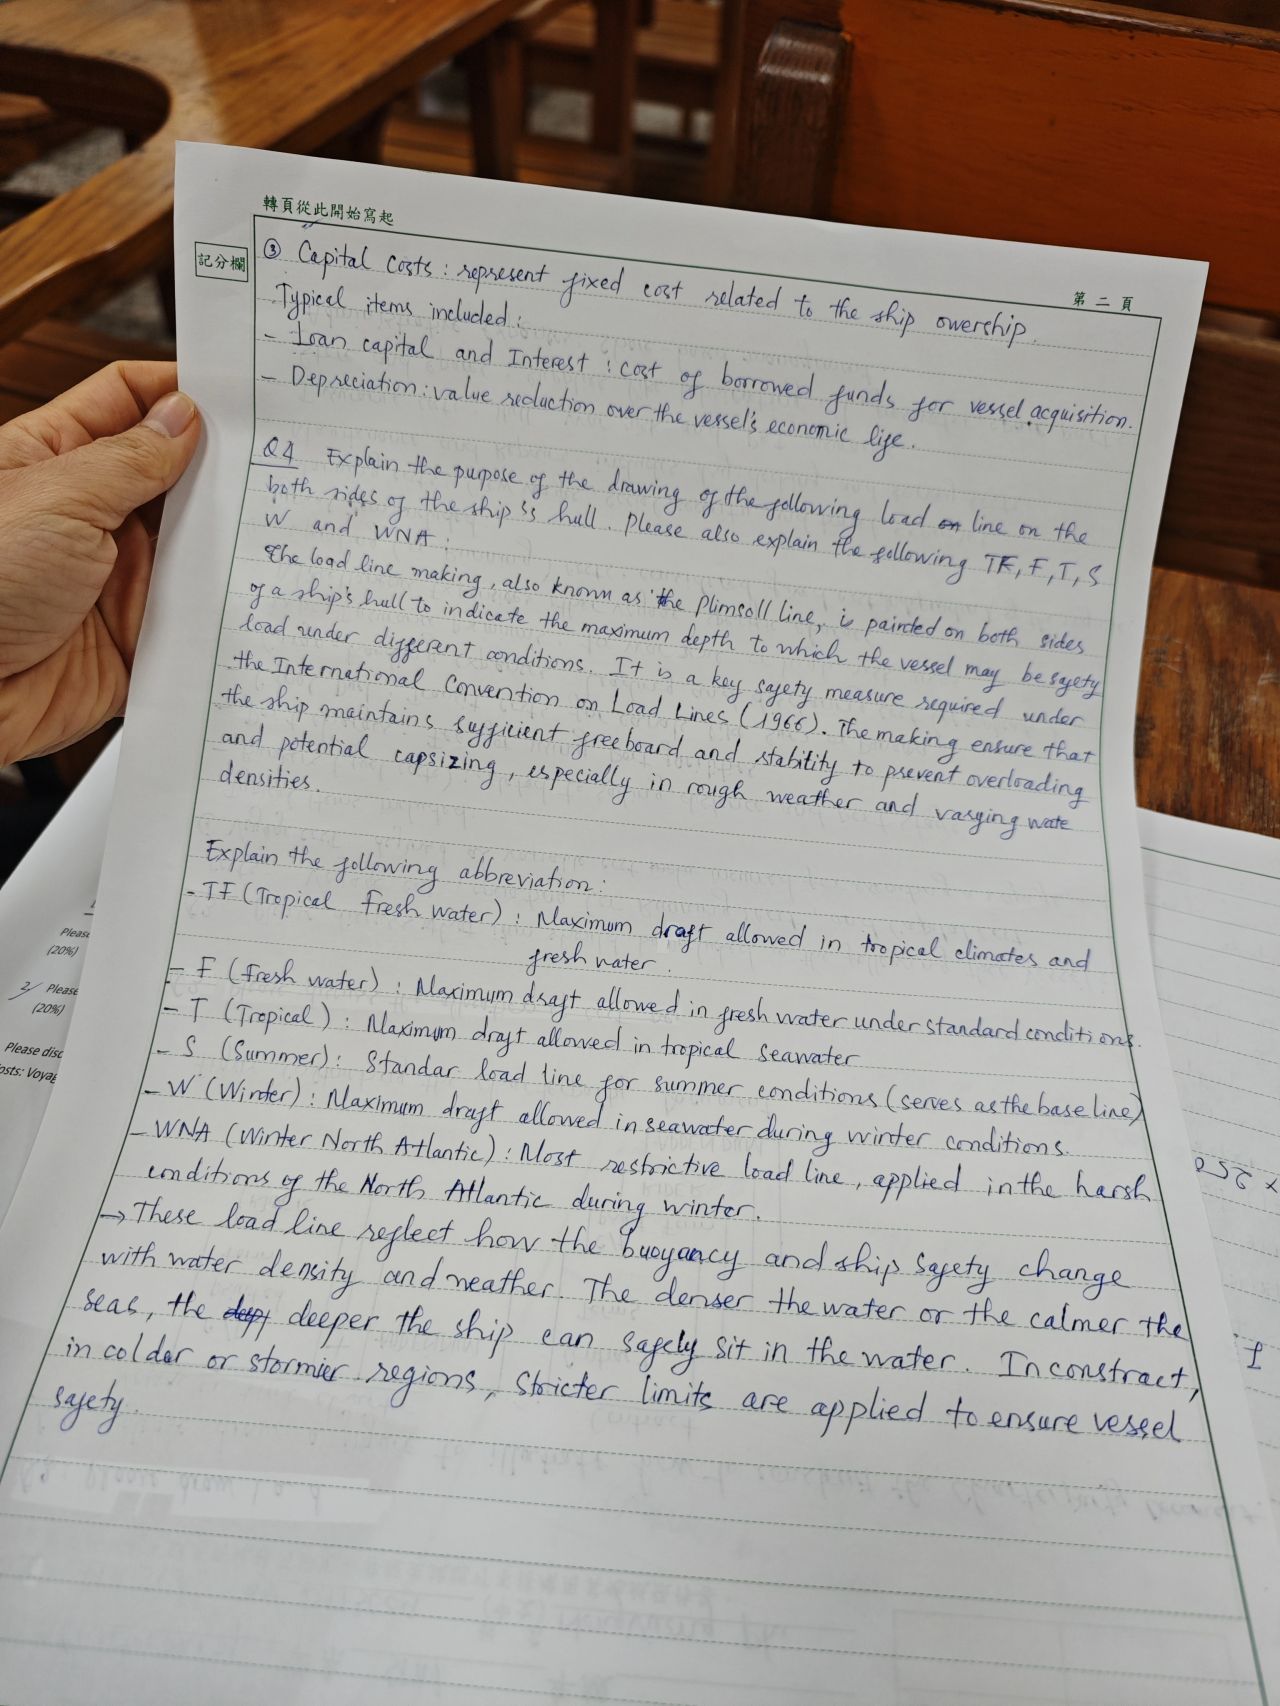 轉頁從此開始寫起
記分欄
第二頁
③ Capital costs : represent fixed cost related to the ship owership.
Typical items included :
- Loan capital and Interest : cost of borrowed funds for vessel acquisition.
- Depreciation : value reduction over the vessel's economic life.
Q4 Explain the purpose of the drawing of the following load line on the
both sides of the ship's hull. Please also explain the following TF, F, T, S
W and WNA :
The load line making, also known as the Plimsoll line, is painted on both sides
of a ship's hull to indicate the maximum depth to which the vessel may be safety
load under different conditions. It is a key safety measure required under
the International Convention on Load Lines (1966). The making ensure that
the ship maintains sufficient freeboard and stability to prevent overloading
and potential capsizing, especially in rough weather and varying wate
densities.
Explain the following abbreviation :
- TF (Tropical Fresh water) : Maximum draft allowed in tropical climates and
fresh water.
- F (Fresh water) : Maximum draft allowed in fresh water under standard conditions.
- T (Tropical) : Maximum draft allowed in tropical seawater
- S (Summer) : Standar load line for summer conditions (serves as the base line)
- W (Winter) : Maximum draft allowed in seawater during winter conditions.
- WNA (Winter North Atlantic) : Most restrictive load line, applied in the harsh
conditions of the North Atlantic during winter.
→ These load line reflect how the buoyancy and ship safety change
with water density and weather. The denser the water or the calmer the
seas, the deeper the ship can safely sit in the water. In constract,
in colder or stormier regions, stricter limits are applied to ensure vessel
safety.
Please
(20%)
2/ Please
(20%)
Please disc
osts: Voyag